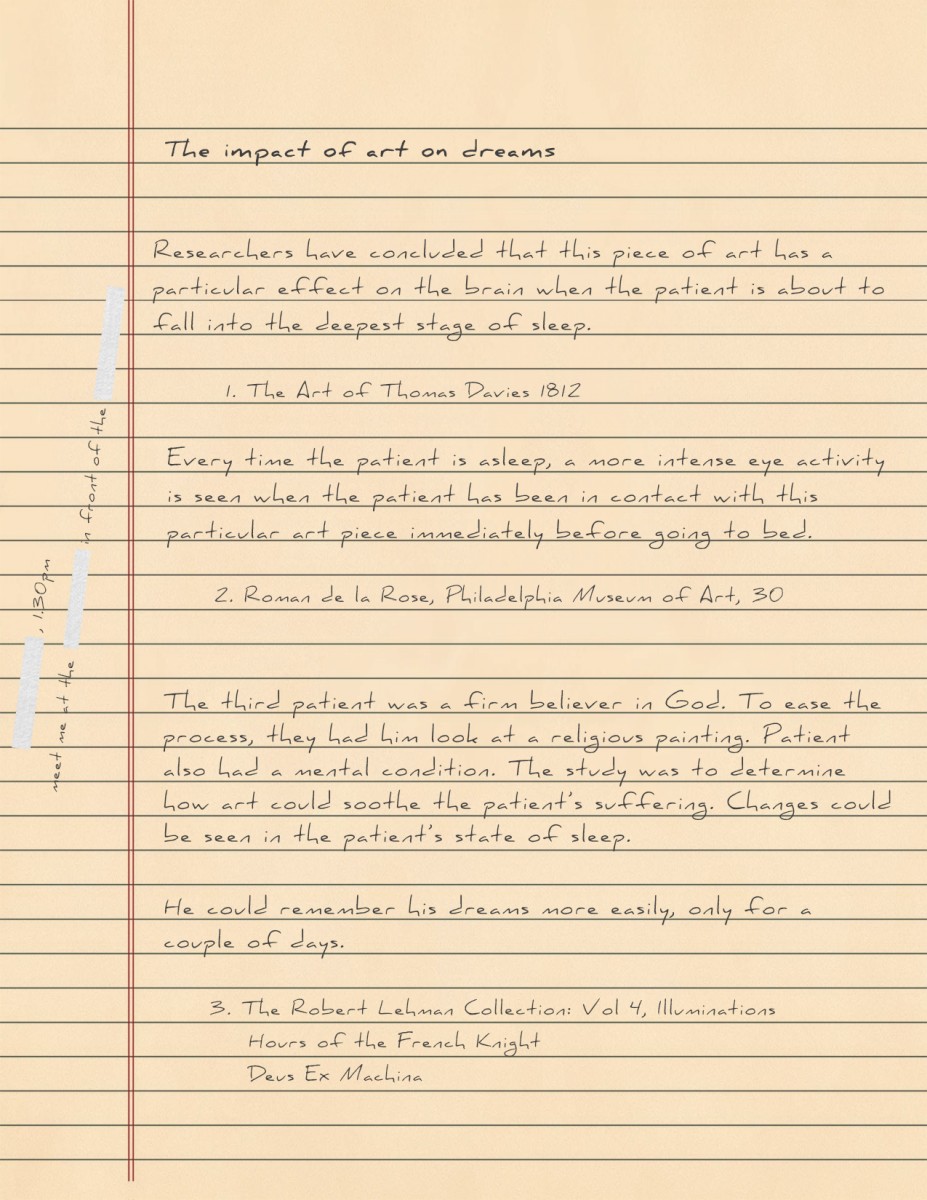 The impact of art on dreams
Researchers have concluded that this piece of art has a
particular effect on the brain when the patient is about to
fall into the deepest stage of sleep.
1. The Art of Thomas Davies 1812
Every time the patient is asleep, a more intense eye activity
is seen when the patient has been in contact with this
particular art piece immediately before going to bed.
2. Roman de la Rose, Philadelphia Museum of Art, 30
The third patient was a firm believer in God. To ease the
process, they had him look at a religious painting. Patient
also had a mental condition. The study was to determine
how art could soothe the patient's suffering. Changes could
be seen in the patient's state of sleep.
He could remember his dreams more easily, only for a
couple of days.
3. The Robert Lehman Collection: Vol 4, Illuminations
Hours of the French Knight
Deus Ex Machina
, 1.30pm
meet me at the in front of the